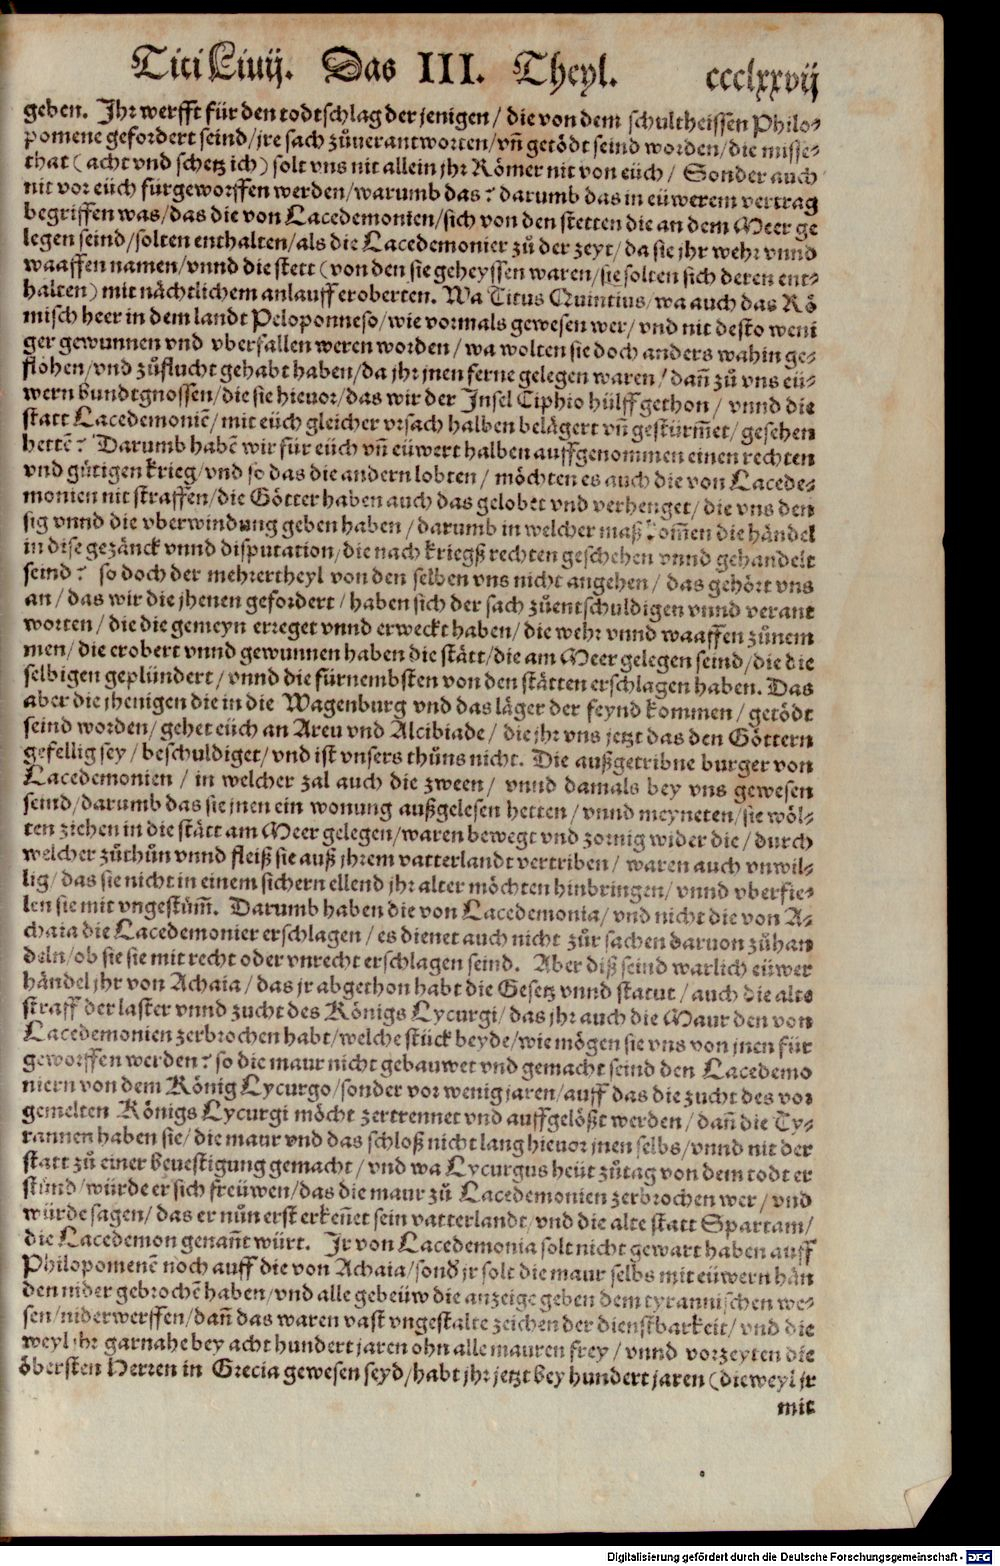 Titi Liuij. Das III. Theyl. ccclxxvij
geben. Ihr werfft für den todtschlag der jenigen / die von dem schultheissen Philo⸗
pomene gefordert seind / jre sach zůuerantworten / vñ getödt seind worden / die misse⸗
that ( acht vnd schetz ich ) solt vns nit allein jhr Römer nit von eüch / Sonder auch
nit vor eüch fürgeworffen werden / warumb das? darumb das in eüwerem vertrag
begriffen was / das die von Lacedemonien / sich von den stetten die an dem Meer ge
legen seind / solten enthalten / als die Lacedemonier zů der zeyt / da sie jhr wehr vnnd
waaffen namen / vnnd die stett ( von den sie geheyssen waren / sie solten sich deren ent⸗
halten ) mit nächtlichem anlauff eroberten. Wa Titus Quintius / wa auch das Rö
misch heer in dem landt Peloponneso / wie vormals gewesen wer / vnd nit desto weni
ger gewunnen vnd vberfallen weren worden / wa wolten sie doch anders wahin ge⸗
flöhen / vnd zůflucht gehabt haben / da jhr jnen ferne gelegen waren / dañ zů vns eü⸗
wern bundtgnossen / die sie hieuor / das wir der Insel Ciphio hülff gethon / vnnd die
statt Lacedemoniẽ / mit eüch gleicher vrsach halben belägert vñ gestürm̃et / gesehen
hettẽ? Darumb habẽ wir für eüch vñ eüwert halben auffgenommen einen rechten
vnd gütigen krieg / vnd so das die andern lobten / möchten es auch die von Lacede⸗
monien nit straffen / die Götter haben auch das gelobet vnd verhenget / die vns den
sig vnnd die vberwindung geben haben / darumb in welcher maß kom̃en die händel
in dise gezänck vnnd disputation / die nach kriegß rechten geschehen vnnd gehandelt
seind? so doch der mehrertheyl von den selben vns nicht angehen / das gehört vns
an / das wir die jhenen gefordert / haben sich der sach zůentschuldigen vnnd verant
worten / die die gemeyn erreget vnnd erweckt haben / die wehr vnnd waaffen zůnem
men / die erobert vnnd gewunnen haben die stätt / die am Meer gelegen seind / die die
selbigen geplündert / vnnd die fürnembsten von den stätten erschlagen haben. Das
aber die jhenigen die in die Wagenburg vnd das läger der feynd kommen / getödt
seind worden / gehet eüch an Areu vnd Alcibiade / die jhr vns jetzt das den Göttern
gefellig sey / beschuldiget / vnd ist vnsers thůns nicht. Die außgetribne burger von
Lacedemonien / in welcher zal auch die zween / vnnd damals bey vns gewesen
seind / darumb das sie jnen ein wonung außgelesen hetten / vnnd meyneten / sie wöl⸗
ten ziehen in die stätt am Meer gelegen / waren bewegt vnd zornig wider die / durch
welcher zůthůn vnnd fleiß sie auß jhrem vatterlandt vertriben / waren auch vnwil⸗
lig / das sie nicht in einem sichern ellend jhr alter möchten hinbringen / vnnd vberfie⸗
len sie mit vngestüm̃. Darumb haben die von Lacedemonia / vnd nicht die von A⸗
chaia die Lacedemonier erschlagen / es dienet auch nicht zůr sachen daruon zůhan
deln / ob sie sie mit recht oder vnrecht erschlagen seind. Aber diß seind warlich eüwer
händel jhr von Achaia / das jr abgethon habt die Gesetz vnnd statut / auch die alte
straff der laster vnnd zucht des Königs Lycurgi / das jhr auch die Maur den von
Lacedemonien zerbrochen habt / welche stück beyde / wie mögen sie vns von jnen für
geworffen werden? so die maur nicht gebauwet vnd gemacht seind den Lacedemo
niern von dem König Lycurgo / sonder vor wenig jaren / auff das die zucht des vor
gemelten Königs Lycurgi möcht zertrennet vnd auffgelößt werden / dañ die Ty⸗
rannen haben sie / die maur vnd das schloß nicht lang hieuor jnen selbs / vnnd nit der
statt zů einer beuestigung gemacht / vnd wa Lycurgus heüt zůtag von dem todt er
stünd / würde er sich freüwen / das die maur zů Lacedemonien zerbrochen wer / vnd
würde sagen / das er nůn erst erkeñet sein vatterlandt / vnd die alte statt Spartam /
die Lacedemon genañt würt. Ir von Lacedemonia solt nicht gewart haben auff
Philopomenẽ noch auff die von Achaia / sonď jr solt die maur selbs mit eüwern hän
den nider gebrochẽ haben / vnd alle gebeüw die anzeige geben dem tyrannischen we⸗
sen / niderwerffen / dañ das waren vast vngestalte zeichen der dienstbarkeit / vnd die
weyl jhr garnahe bey acht hundert jaren ohn alle mauren frey / vnnd vorzeyten die
öbersten Herren in Grecia gewesen seyd / habt jhr jetzt bey hundert jaren ( dieweyl jr
mit
Digitalisierung gefördert durch die Deutsche Forschungsgemeinschaft - DFG